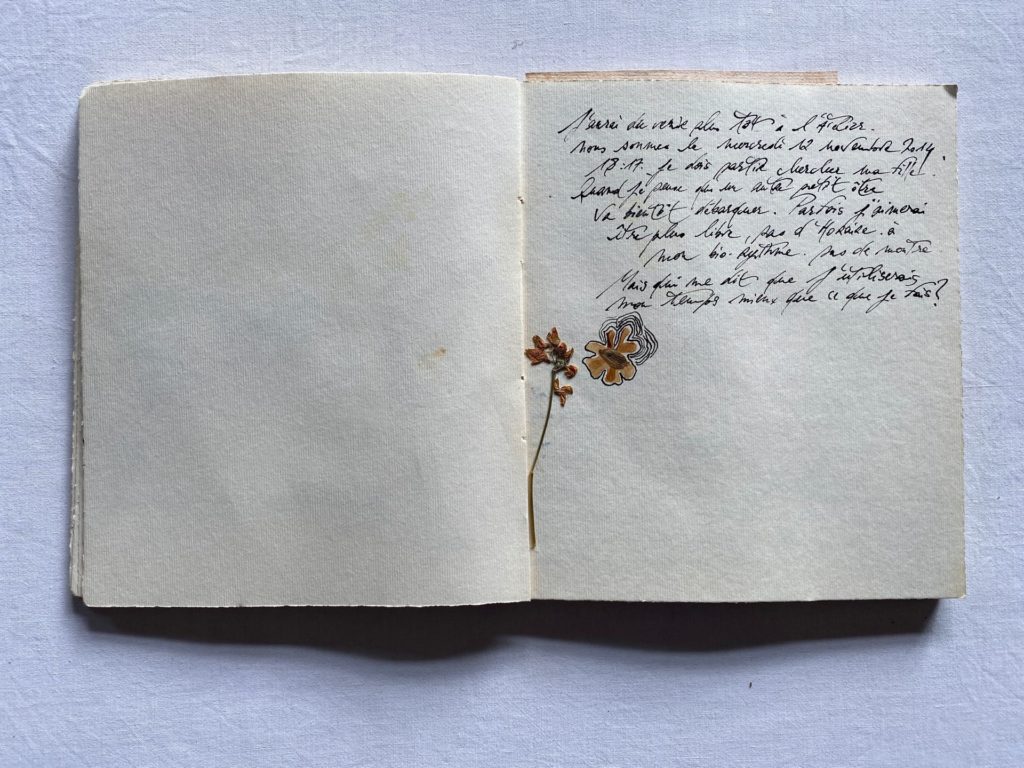 J'aurai du venir plus tôt à l'Atelier.
nous sommes le mercredi 12 novembre 2014.
18.17. je dois partir chercher ma fille.
Quand je pense qu'un autre petit être
va bientôt débarquer. Parfois j'aimerai
être plus libre, pas d'Horaire. à
mon bio-rythme. pas de montre
Mais qui me dit que j'utiliserais
mon temps mieux que ce que je fais?